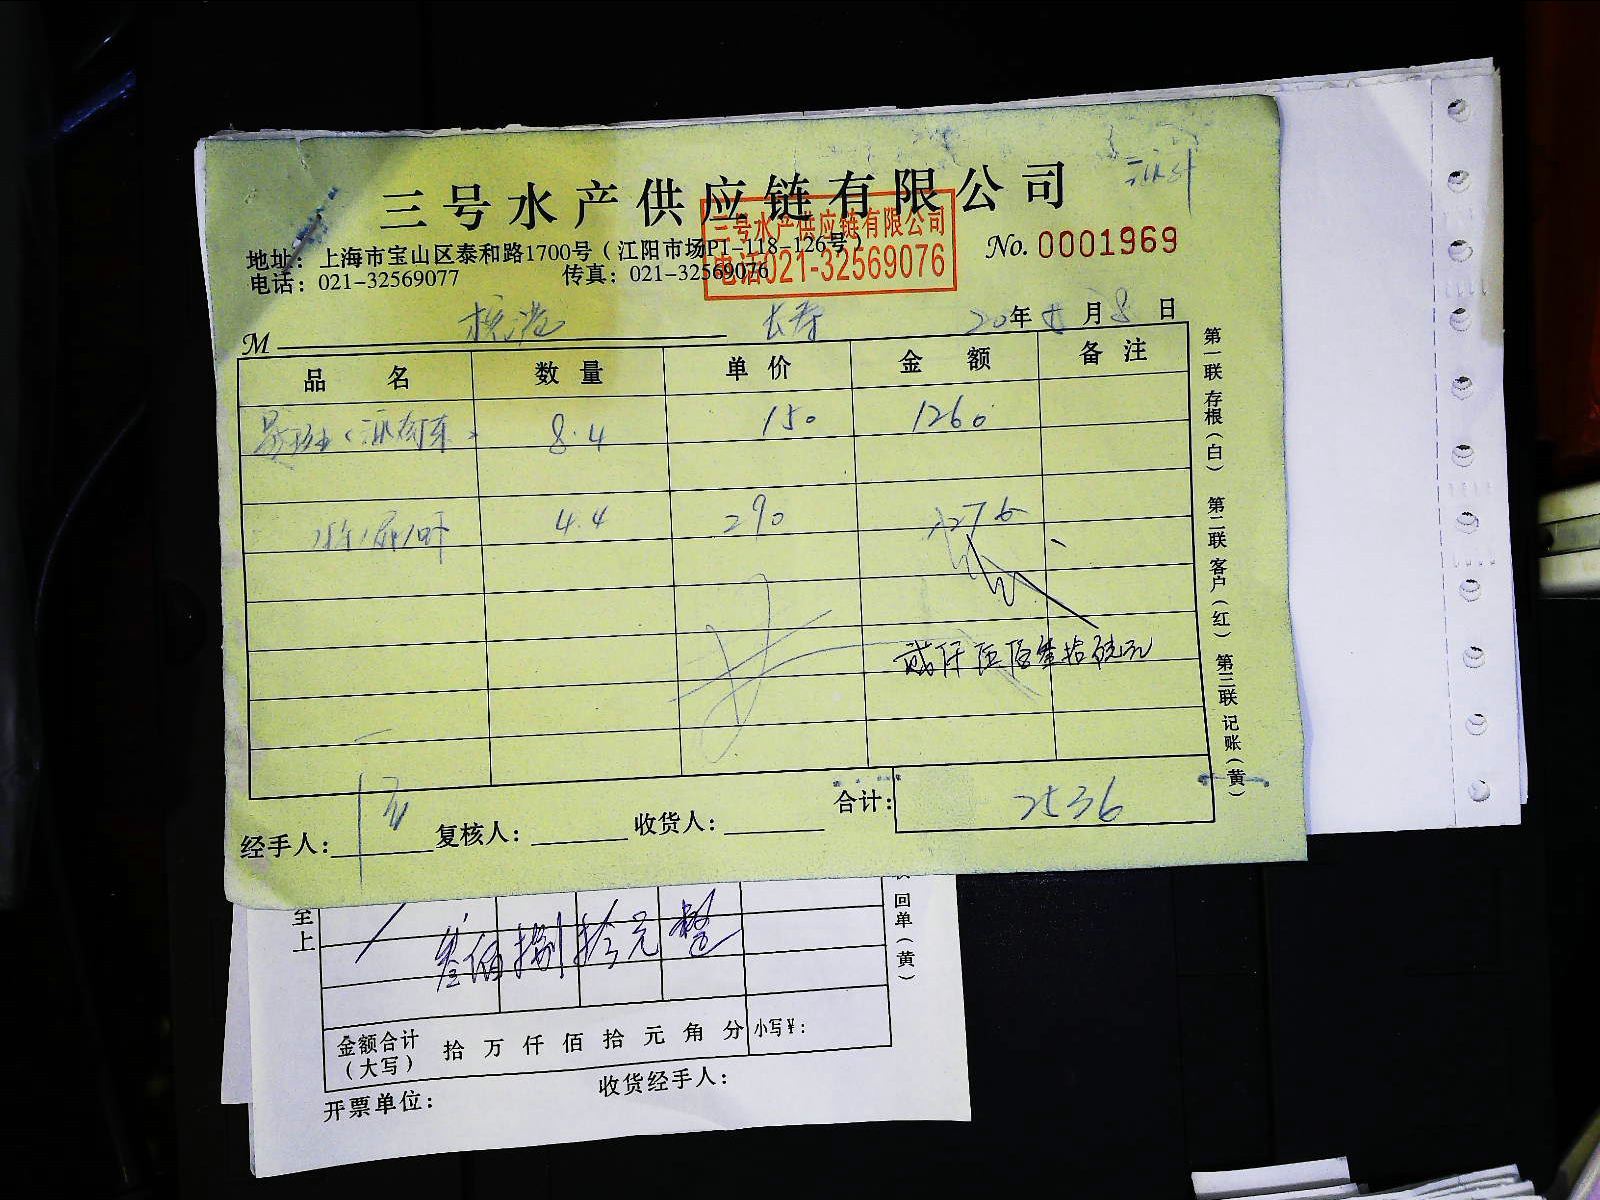 三号水产供应链有限公司
地址：上海市宝山区泰和路1700号（江阳市场P1-118-126号）
电话：021-32569077 传真：021-32569076
三号水产供应链有限公司
电话021-32569076
No. 0001969
M 长寿 20年 月8日
品 名 数 量 单 价 金 额 备 注
8.4 150 1260
4.4 290 1276
贰仟伍佰叁拾陆元
合计： 2536
经手人： 复核人： 收货人：
第一联 存根（白） 第二联 客户（红） 第三联 记账（黄）
至上
叁佰捌拾元整
回单（黄）
金额合计（大写） 拾 万 仟 佰 拾 元 角 分 小写¥：
开票单位： 收货经手人：